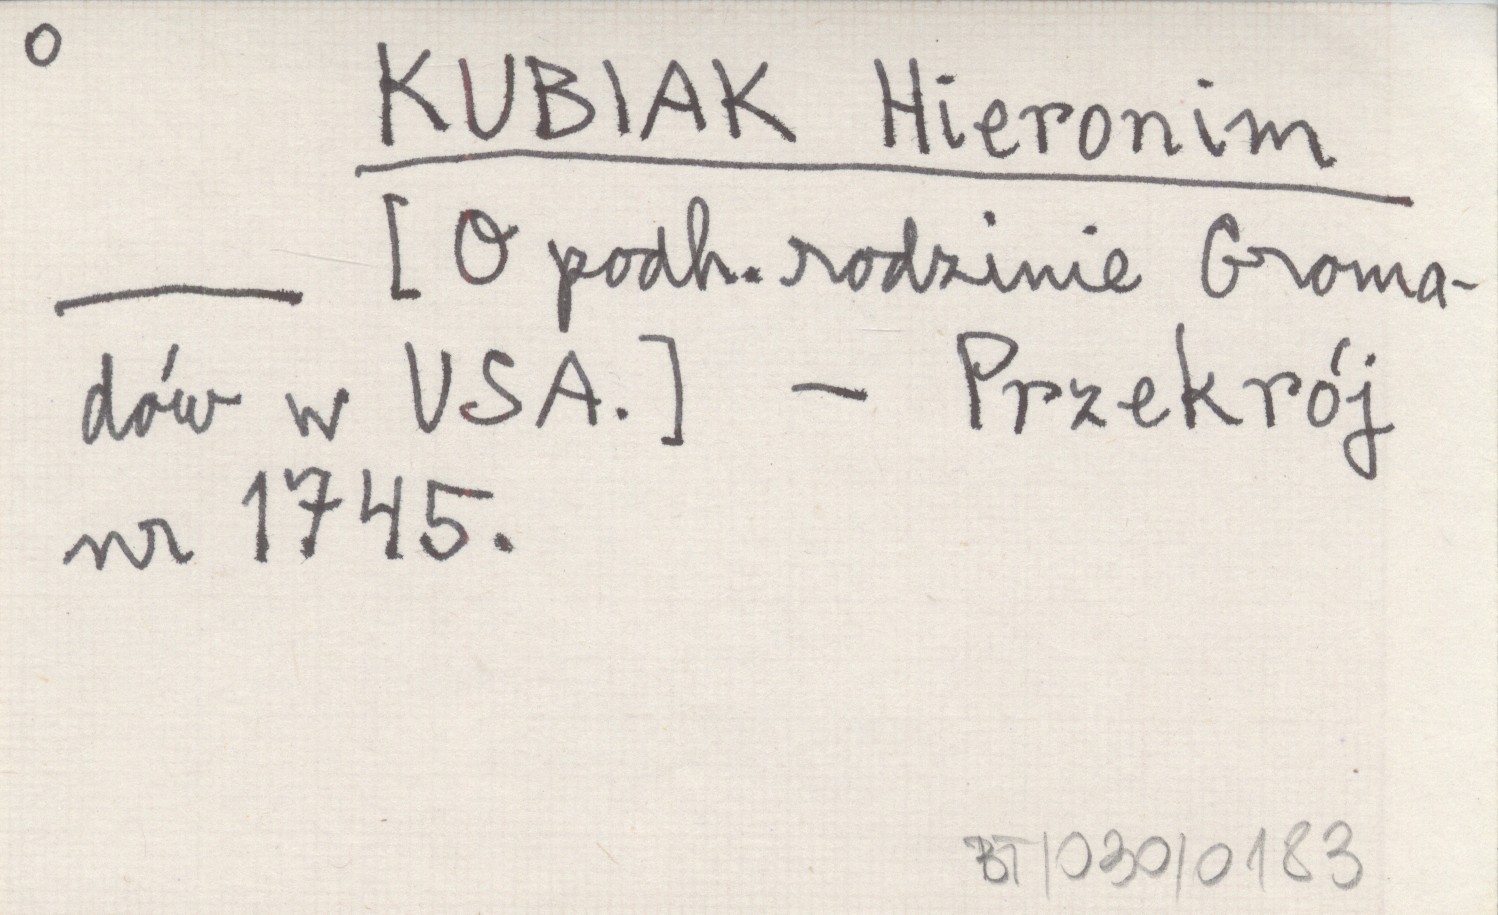 o
KUBIAK Hieronim
[O podh. rodzinie Groma-
dów w USA.] - Przekrój
nr 1745.
BT/030/0183